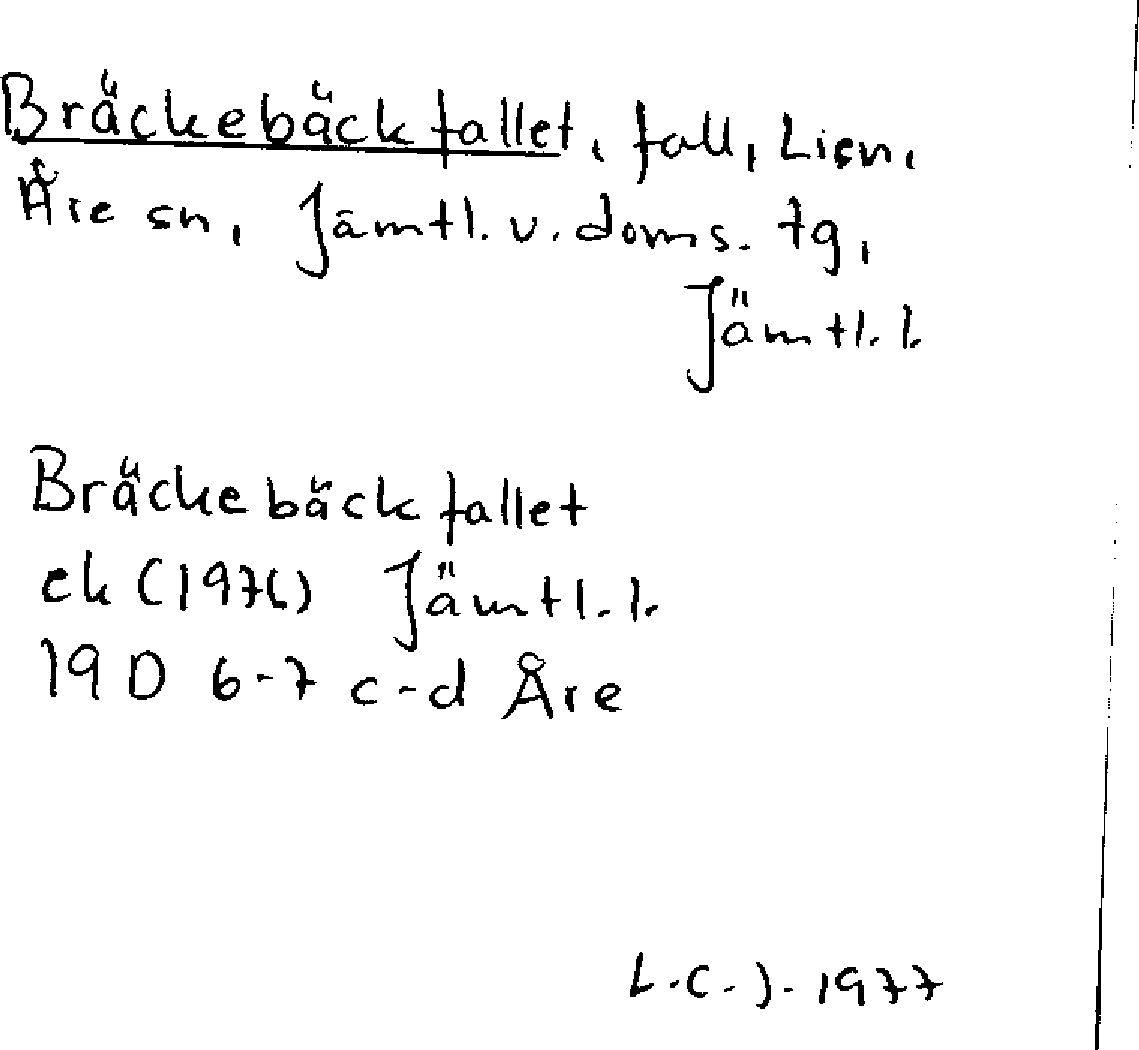 Bräckebäckfallet, fall, Lien,
Åre sn, Jämtl. v. doms. tg,
Jämtl. l.
Bräckebäckfallet
ek (1976) Jämtl. l.
19 D 6-7 c-d Åre
L.C.J. 1977